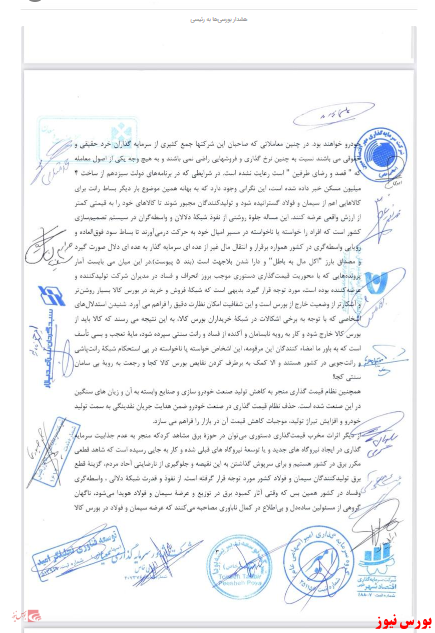 هشدار بورسی‌ها به رئیسی
خودرو خواهند بود. در چنین معاملاتی که صاحبان این شرکتها جمع کثیری از سرمایه گذاران خرد حقیقی و
حقوقی می باشند نسبت به چنین نرخ گذاری و فروشهایی راضی نمی باشند و به هیچ وجه یکی از اصول معامله
که " قصد و رضای طرفین " است رعایت نشده است. در شرایطی که در برنامه‌های دولت سیزدهم از ساخت ۴
میلیون مسکن خبر داده شده است، این نگرانی وجود دارد که به بهانه همین موضوع بار دیگر بساط رانت برای
کالاهایی اعم از سیمان و فولاد گسترانیده شود و تولیدکنندگان مجبور شوند تا کالاهای خود را به قیمتی کمتر
از ارزش واقعی عرضه کنند. این مساله جلوه روشنی از نفوذ شبکه دلالان و واسطه‌گران در سیستم تصمیم‌سازی
کشور است که افراد را خواسته یا ناخواسته در مسیر امیال خود به حرکت درمی‌آورند تا بساط سود فوق‌العاده و
رویایی واسطه‌گری در کشور همواره برقرار و انتقال مال غیر از عده ای سرمایه گذار به عده ای دلال صورت گیرد
و مصداق بارز "اکل مال به باطل" و دارا شدن بلاجهت است (بند ۵ پیوست). در این میان می بایست آمار
پرونده‌هایی که با محوریت قیمت‌گذاری دستوری موجب بروز انحراف و فساد در مدیران شرکت تولیدکننده و
عرضه‌کننده بوده است، مورد توجه قرار گیرد. بدیهی است که شبکهٔ فروش و خرید در بورس کالا بسیار روشن‌تر
و آشکارتر از وضعیت خارج از بورس است و این شفافیت امکان نظارت دقیق را فراهم می آورد. شنیدن استدلال‌های
اشخاصی که با توجه به برخی اشکالات در شبکهٔ خریداران بورس کالا، به این نتیجه می رسند که کالا باید از
بورس کالا خارج شود و کار به رویه نابسامان و آکنده از فساد و رانت سنتی سپرده شود، مایهٔ تعجب و بسی تأسف
است که به باور ما امضاء کنندگان این مرقومه، این اشخاص خواسته یا ناخواسته در پی استحکام شبکهٔ رانت‌پاشی
و رانت‌جویی در کشور هستند و الا کمک به برطرف کردن نقایص بورس کالا کجا و رجعت به رویهٔ بی سامان
سنتی کجا!
همچنین نظام قیمت گذاری منجر به کاهش تولید صنعت خودرو سازی و صنایع وابسته به آن و زیان های سنگین
در این صنعت شده است. حذف نظام قیمت گذاری در صنعت خودرو ضمن هدایت جریان نقدینگی به سمت تولید
خودرو و افزایش تیراژ تولید، موجبات کاهش قیمت آن در بازار را فراهم می سازد.
از دیگر اثرات مخرب قیمت‌گذاری دستوری می‌توان در حوزهٔ برق مشاهد کردکه منجر به عدم جذابیت سرمایه
گذاری در ایجاد نیروگاه های جدید و یا توسعهٔ نیروگاه های قبلی شده و کار به جایی رسیده است که شاهد قطعی
مکرر برق در کشور هستیم و برای سرپوش گذاشتن به این نقیصه و جلوگیری از نارضایتی آحاد مردم، گزینهٔ قطع
برق تولیدکنندگان سیمان و فولاد کشور مورد توجه قرار گرفته است. از نفوذ و قدرت شبکهٔ دلالی - واسطه‌گری
وفساد در کشور همین بس که وقتی آثار کمبود برق در توزیع و عرضهٔ سیمان و فولاد هویدا می‌شود، ناگهان
گروهی از مسئولین ساده‌دل و بی‌اطلاع در کمال ناباوری مصاحبه می‌کنند که عرضه سیمان و فولاد در بورس کالا
بورس نیوز